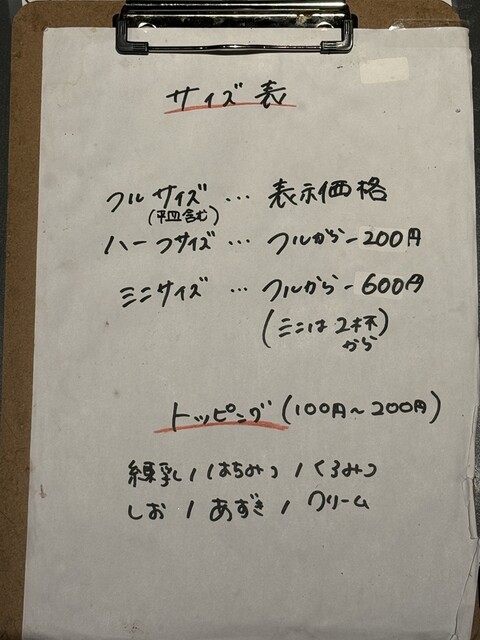 サイズ表
フルサイズ … 表示価格
(平皿含む)
ハーフサイズ … フルから-200円
ミニサイズ … フルから-600円
(ミニは2杯
から)
トッピング (100円〜200円)
練乳 / はちみつ / くろみつ
しお / あずき / クリーム